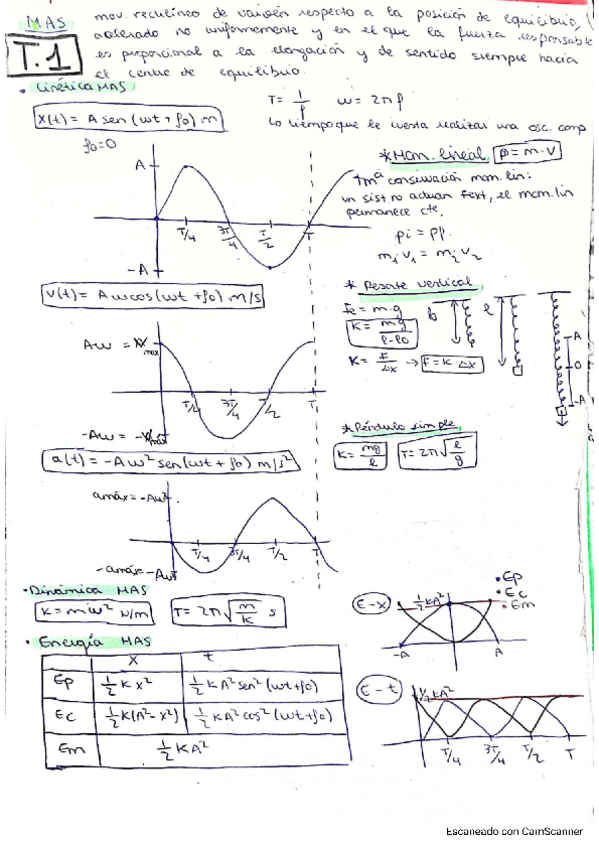 MAS
mov. rectilíneo de vaivén respecto a la posición de equilibrio,
acelerado no uniformemente y en el que la fuerza responsable
T.1
es proporcional a la elongación y de sentido siempre hacia
el centro de equilibrio.
• Cinética MAS
T = 1/f   ω = 2πf
x(t) = A sen (ωt + φ0) m
Lo tiempo que le cuesta realizar una osc. comp
φ0=0
* Mom. lineal   p = m·v
A
Tmª conservación mom. lin:
un sist no actúan Fext, el mom. lin
permanece cte.
T/4   3T/4   T/2   T
pi = pf
m₁v₁ = m₂v₂
-A
* Resorte vertical
v(t) = Aωcos(ωt + φ0) m/s
Fe = m·g
K = mg/l-l0
K = F/Δx → F = K·Δx
l0   l
A
O
-A
Aω = Vmáx
T/4   3T/4   T/2   T
-Aω = -Vmáx
* Péndulo simple
K = mg/l   T = 2π√l/g
a(t) = -Aω² sen(ωt + φ0) m/s²
amáx = -Aω²
T/4   3T/4   T/2   T
-amáx = -Aω²
• Dinámica MAS
K = mω² N/m   T = 2π√m/K s
E-x   1/2KA²
• Ep
• Ec
• Em
-A   A
• Energía MAS
x   t
Ep   1/2 K x²   1/2 KA² sen² (ωt + φ0)
Ec   1/2 K(A² - x²)   1/2 KA² cos² (ωt + φ0)
Em   1/2 KA²
E-t   1/2KA²
T/4   3T/4   T/2   T
Escaneado con CamScanner